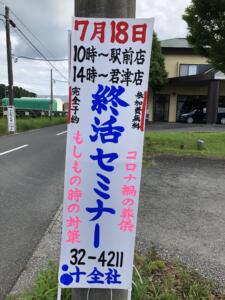 7月18日
10時～駅前店
14時～君津店
完全予約
参加費無料
終活セミナー
コロナ禍の葬儀
もしもの時の対策
32-4211
十全社